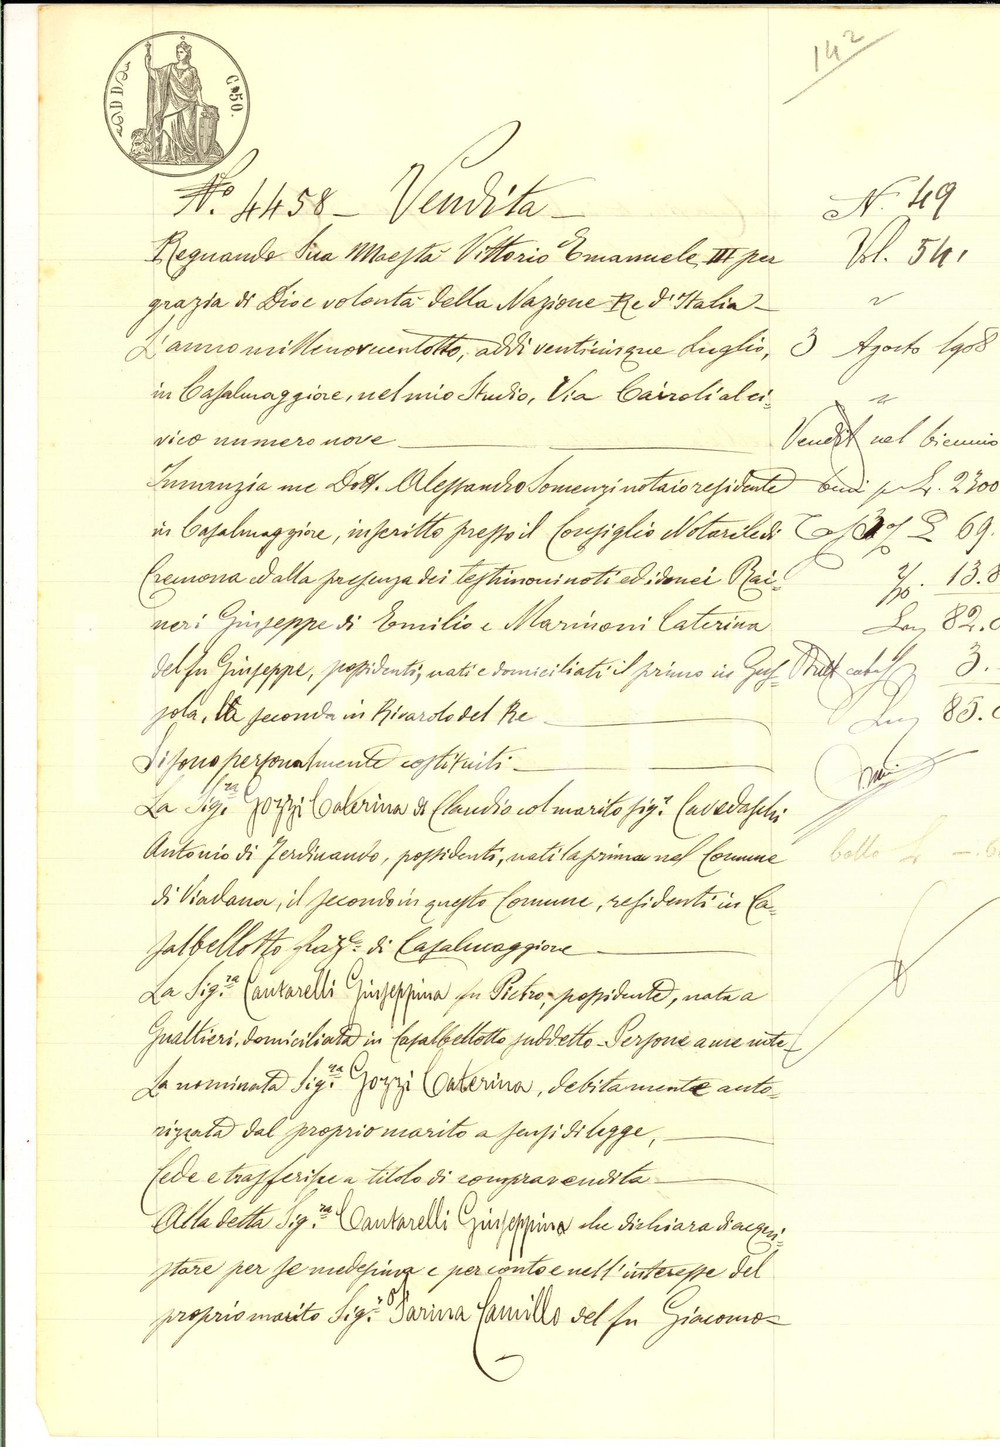 142
ADDÌ
C. 50.
N.º 4458 - Vendita -
N. 49
Regnando Sua Maestà Vittorio Emanuele III per
Vol. 54,
grazia di Dio e volontà della Nazione Re d'Italia -
L'anno millenovecentotto, addì venticinque Luglio,
3 Agosto 1908
in Casalmaggiore, nel mio Studio, Via Cairoli al ci=
vico numero nove
nel biennio
Innanzi a me Dott. Alessandro Somenzi notaio residente
per L. 2300
in Casalmaggiore, inscritto presso il Consiglio Notarile di
3 % £ 69.
Cremona ed alla presenza dei testimoni noti ed idonei Rai=
2/10. 13.8
neri Giuseppe di Emilio e Marinoni Caterina
82.
del fu Giuseppe, possidenti, nati e domiciliati il primo in Gus=
3.
sola, la seconda in Rivarolo del Re
85.
Si sono personalmente costituiti
La Sig.ra Gozzi Caterina di Claudio col marito Sig.r Cavedaschi
Antonio di Ferdinando, possidenti, nati la prima nel Comune
bollo L. - . 6
di Viadana, il secondo in questo Comune, residenti in Ca=
salbellotto fraz.e di Casalmaggiore
La Sig.ra Cantarelli Giuseppina fu Pietro, possidente, nata a
Gualtieri, domiciliata in Casalbellotto suddetto - Persone a me note
La nominata Sig.ra Gozzi Caterina, debitamente auto=
rizzata dal proprio marito a sensi di legge,
Cede e trasferisce a titolo di compravendita
Alla detta Sig.ra Cantarelli Giuseppina che dichiara di acqui=
stare per se medesima e per conto e nell'interesse del
proprio marito Sig.r Farina Camillo del fu Giacomo=